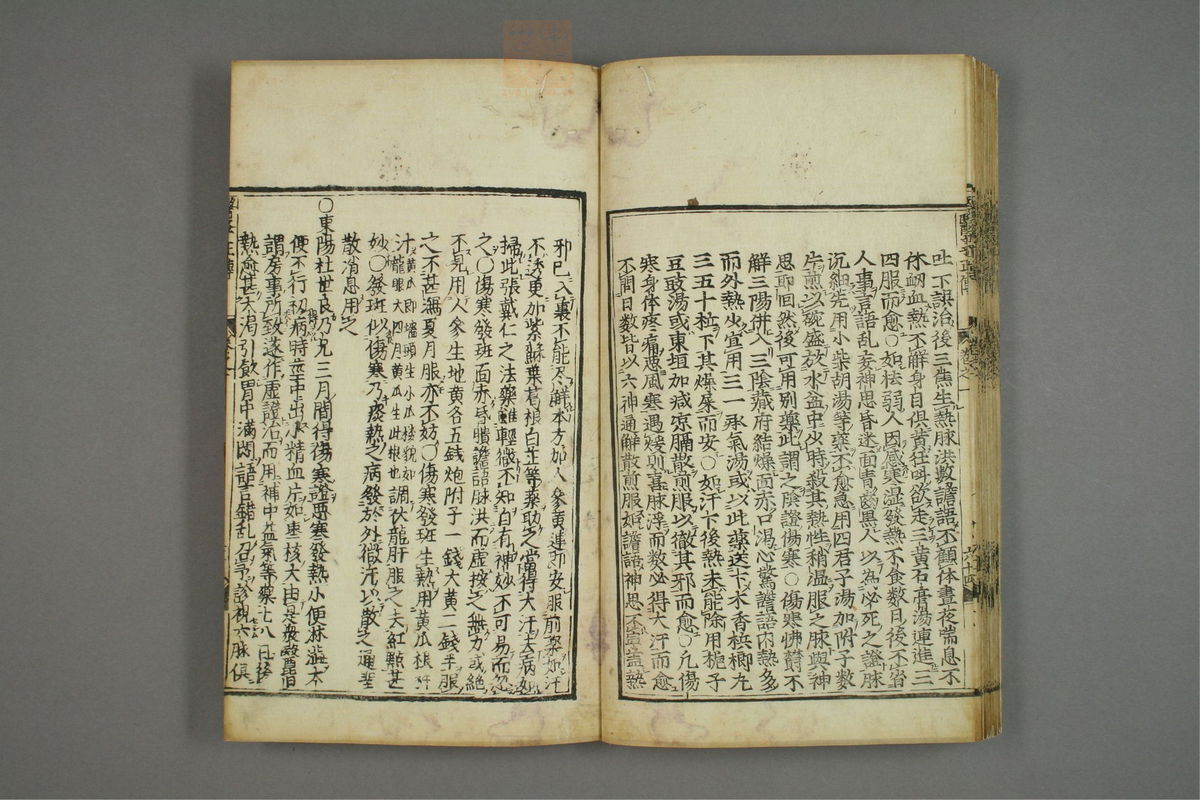 吐下誤治後三焦生熱脉洪數譫語不顧休晝夜喘息不
休衂血熱不解身目俱黃狂呼欲走三黃石膏湯連進三
四服而愈○如怯弱人因感寒濕發熱不食數日後不省
人事言語乱妄神思昏迷面青齒黑人以為必死之證脉
沉細先用小柴胡湯等藥不愈急用四君子湯加附子數
片煎以碗盛放水盆中少時殺其熱性稍温服之脉與神
思即回然後可用別藥此謂之陰證傷寒○傷寒怫鬱不
解三陽併入三陰藏府結燥面赤口渴心驚譫語内熱多
而外熱少宜用三一承氣湯或以此藥送下木香梹榔丸
三五十粒下其燥屎而安○如汗下後熱未能除用梔子
豆豉湯或東垣加减凉膈散煎服以徹其邪而愈○凢傷
寒身体疼痛惡風寒遇煖則喜脉浮而數必得大汗而愈
不問日數皆以六神通解散煎服如譫語神思不 盖熱
邪已入裏不能尽解本方加人參黄連即安服前藥如汗
不透更加紫蘇葉葛根白芷等藥助之當得大汗去病如
掃此張戴仁之法藥雖輕微不知自有神妙不可易而忽
之○傷寒發斑面赤昏聵譫語脉洪而虛按之無力或絕
不見用人參生地黄各五錢炮附子一錢大黄二錢半服
之不甚瀉夏月服亦不妨○傷寒發斑生熱用黄瓜根
汁 黄瓜即墻頭生小瓜 貌如龍眼大四月黄瓜生此根也 調伏龍肝服之去紅點甚
妙○發斑似傷寒乃痰熱之病發於外微汗以散之通聖
散消息用之
○東陽杜世良乃兄三月間得傷寒證惡寒發熱小便淋澁大
便不行初病時莖中出小精血片如枣核大由是衆醫皆
謂房事所致遂作虛證治而用補中益氣等藥七八日後
熱愈甚大渴引飲胃中滿悶語言錯乱召予診視六脉俱